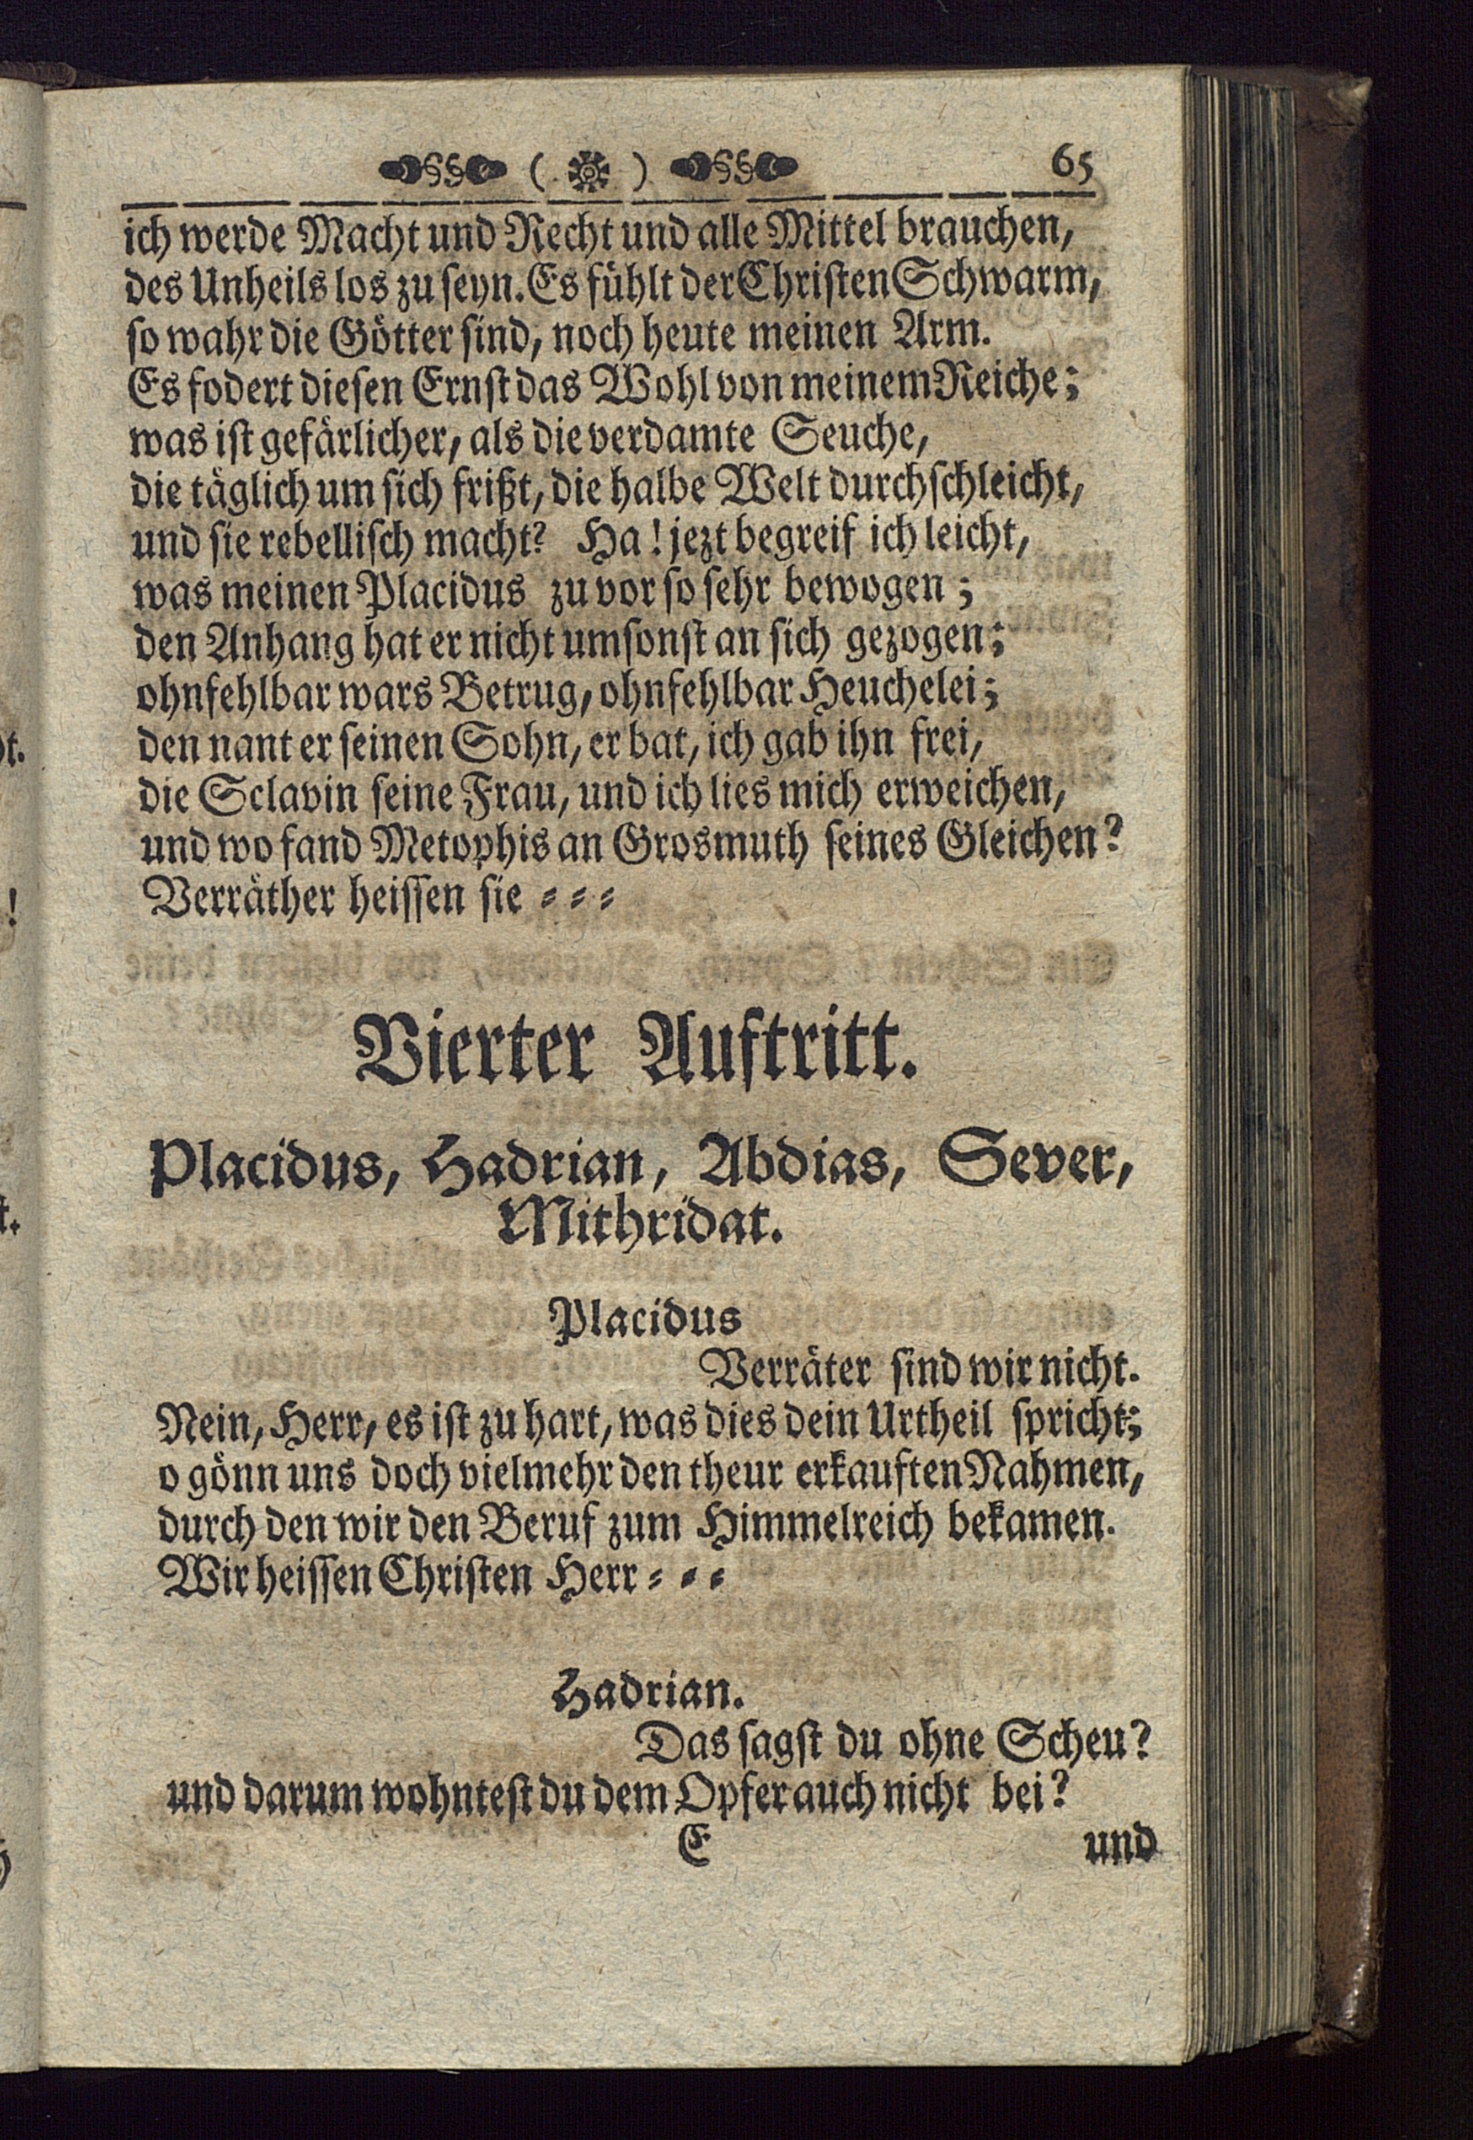 §§ ( ) §§ 65
ich werde Macht und Recht und alle Mittel brauchen,
des Unheils los zu seyn. Es fühlt der Christen Schwarm,
so wahr die Götter sind, noch heute meinen Arm.
Es fodert diesen Ernst das Wohl von meinem Reiche;
was ist gefärlicher, als die verdamte Seuche,
die täglich um sich frißt, die halbe Welt durchschleicht,
und sie rebellisch macht? Ha! jezt begreif ich leicht,
was meinen Placidus zu vor so sehr bewogen;
den Anhang hat er nicht umsonst an sich gezogen;
ohnfehlbar wars Betrug, ohnfehlbar Heuchelei;
den nant er seinen Sohn, er bat, ich gab ihn frei,
die Sclavin seine Frau, und ich lies mich erweichen,
und wo fand Metophis an Grosmuth seines Gleichen?
Verräther heissen sie ⸗ ⸗ ⸗
Vierter Auftritt.
Placidus, Hadrian, Abdias, Sever,
Mithridat.
Placidus
Verräter sind wir nicht.
Nein, Herr, es ist zu hart, was dies dein Urtheil spricht;
o gönn uns doch vielmehr den theur erkauften Nahmen,
durch den wir den Beruf zum Himmelreich bekamen.
Wir heissen Christen Herr ⸗ ⸗ ⸗
Hadrian.
Das sagst du ohne Scheu?
und darum wohntest du dem Opfer auch nicht bei?
E und